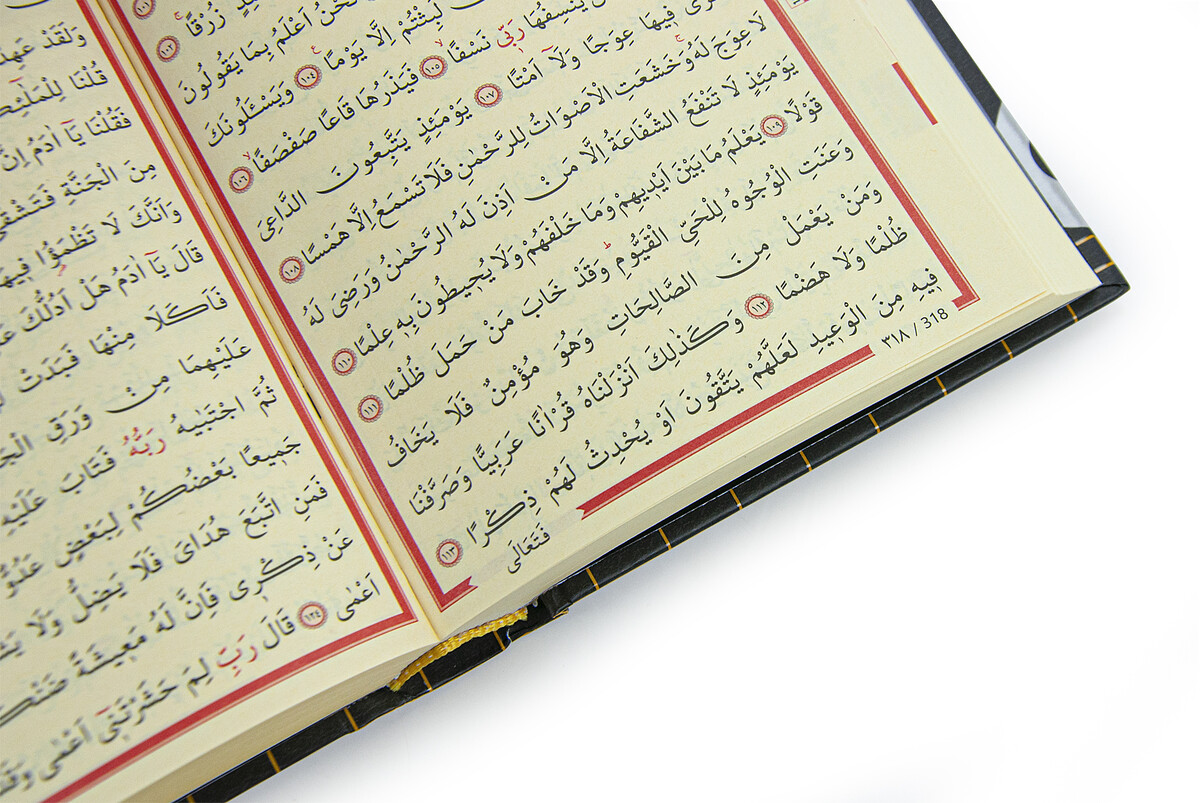 ١٠١
زُرْقًا ١٠٢
نَحْنُ اَعْلَمُ بِمَا يَقُولُونَ
لَبِثْتُمْ اِلَّا يَوْمًا ١٠٤ وَيَسْـَٔلُونَكَ
يَنْسِفُهَا رَبّ۪ى نَسْفًا ١٠٥ فَيَذَرُهَا قَاعًا صَفْصَفًا ١٠٦
تَرٰى ف۪يهَا عِوَجًا وَلَٓا اَمْتًا ١٠٧ يَوْمَئِذٍ يَتَّبِعُونَ الدَّاعِىَ
لَا عِوَجَ لَهُ وَخَشَعَتِ الْاَصْوَاتُ لِلرَّحْمٰنِ فَلَا تَسْمَعُ اِلَّا هَمْسًا ١٠٨
يَوْمَئِذٍ لَا تَنْفَعُ الشَّفَاعَةُ اِلَّا مَنْ اَذِنَ لَهُ الرَّحْمٰنُ وَرَضِىَ لَهُ
قَوْلًا ١٠٩ يَعْلَمُ مَا بَيْنَ اَيْد۪يهِمْ وَمَا خَلْفَهُمْ وَلَا يُح۪يطُونَ بِه۪ عِلْمًا ١١٠
وَعَنَتِ الْوُجُوهُ لِلْحَىِّ الْقَيُّومِ وَقَدْ خَابَ مَنْ حَمَلَ ظُلْمًا ١١١
وَمَنْ يَعْمَلْ مِنَ الصَّالِحَاتِ وَهُوَ مُؤْمِنٌ فَلَا يَخَافُ
ظُلْمًا وَلَا هَضْمًا ١١٢ وَكَذٰلِكَ اَنْزَلْنَاهُ قُرْاٰنًا عَرَبِيًّا وَصَرَّفْنَا
ف۪يهِ مِنَ الْوَع۪يدِ لَعَلَّهُمْ يَتَّقُونَ اَوْ يُحْدِثُ لَهُمْ ذِكْرًا ١١٣
فَتَعَالَى
٣١٨ / 318
وَلَقَدْ
قُلْنَا
فَقُلْنَا يَٓا اٰدَمُ اِنَّ
مِنَ الْجَنَّةِ فَتَشْقٰى
وَاَنَّكَ لَا تَظْمَؤُ۬ا ف۪يهَا
قَالَ يَٓا اٰدَمُ هَلْ اَدُلُّكَ
فَاَكَلَا مِنْهَا فَبَدَتْ
عَلَيْهِمَا مِنْ وَرَقِ
ثُمَّ اجْتَبٰيهُ رَبُّهُ فَتَابَ عَلَيْهِ
جَم۪يعًا بَعْضُكُمْ لِبَعْضٍ عَدُوٌّ
فَمَنِ اتَّبَعَ هُدَاىَ فَلَا يَضِلُّ وَلَا
عَنْ ذِكْر۪ى فَاِنَّ لَهُ مَع۪يشَةً
اَعْمٰى ١٢٤ قَالَ رَبِّ لِمَ حَشَرْتَن۪ٓى اَعْمٰى وَقَدْ